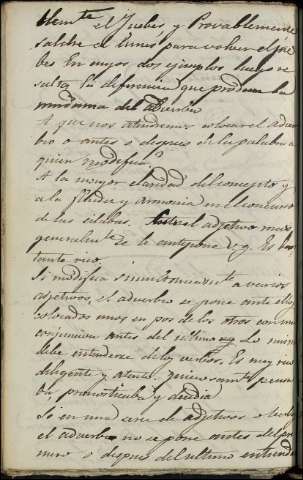 el Jueves, y Provablemente
saldré el Lunes para volver el Jue
bes En cuyos dos ejemplos luego re
salta la diferencia que produce la
mudanza del adverbio
A que nos atendremos colocar el adver
bio o antes o despues de la palabra a
quien modifica?
A la mayor claridad del concepto y
a la fluidez y armonia en el concurso
de las silabas. el adjetivo mas
generalmte se le antepone v.g. Es bas
tante rico.
Si modifica simultaneamente a varios
adjetivos, el adverbio se pone ante ellos
colocados unos en pos de los otros con una
conjuncion antes del ultimo Lo mismo
debe entenderse de los verbos. Es muy rico
diligente y atento. pensa
ba, pronosticaba y decidia
Si en una serie de adjetivos o verbos
el adverbio no se pone antes del pri
mero o despues del ultimo entiende